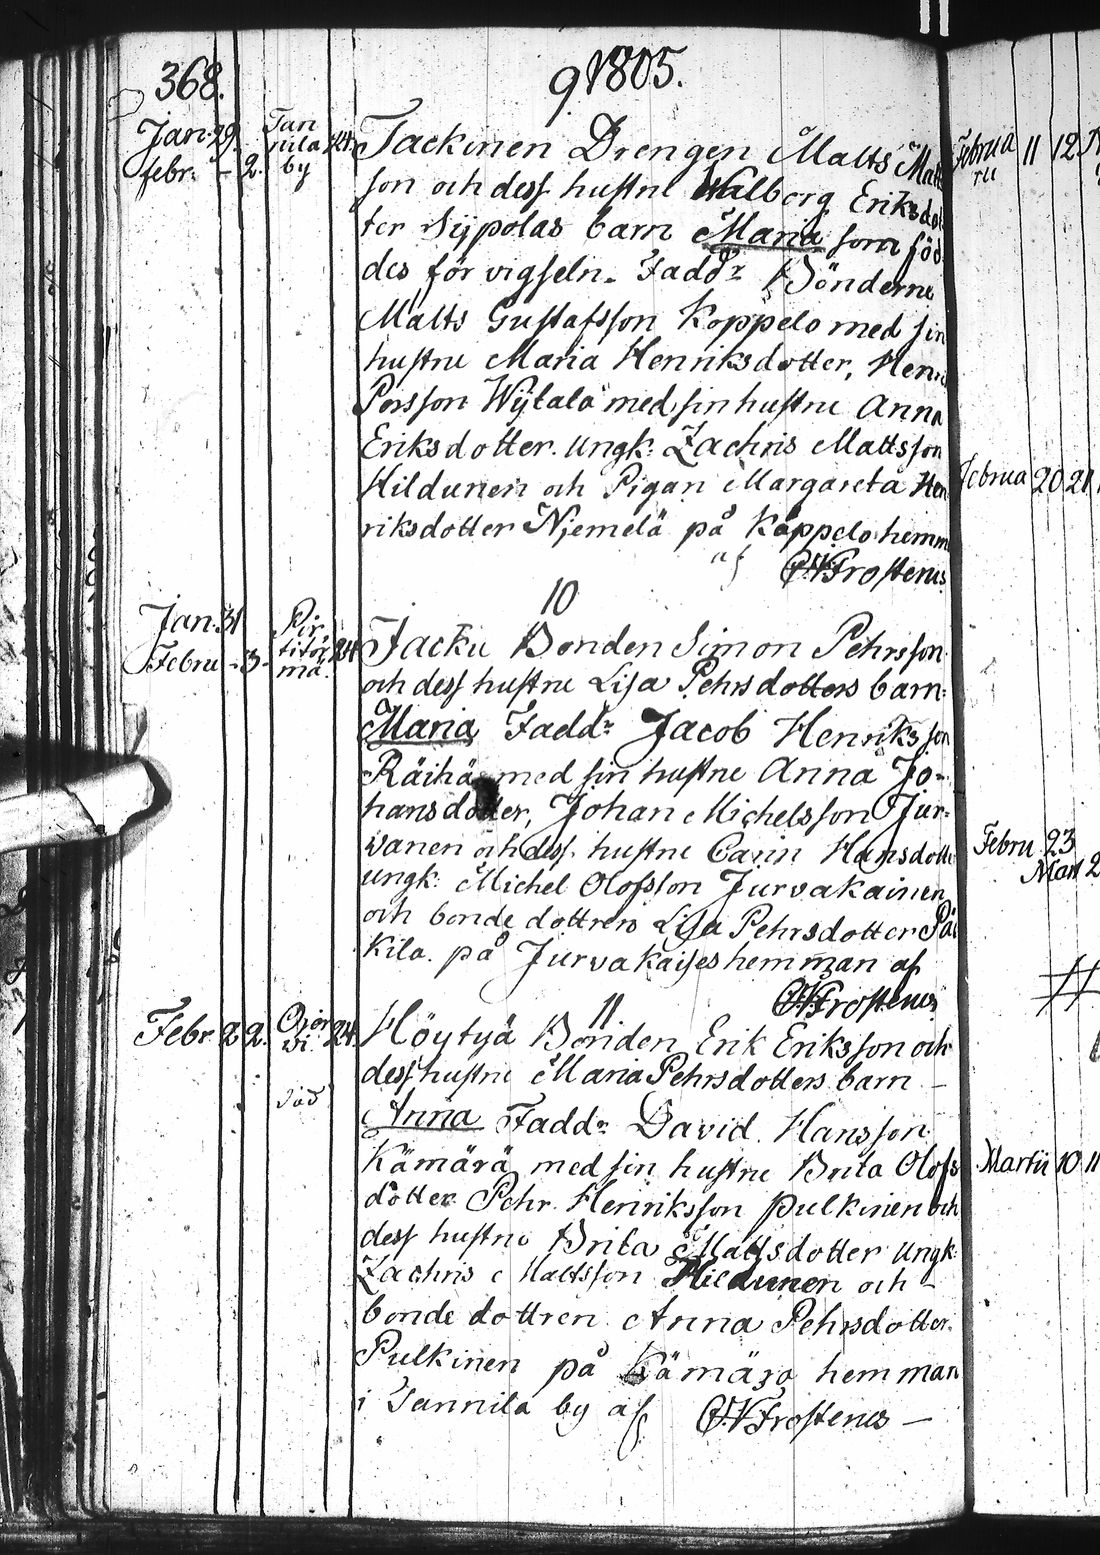 368.
9 1805.
Jan: 29. Tan
nila 24.
febr. - 2. by
Jackinen Drengen Matts Matt
son och dess hustru Walborg Eriksdot
ter Sijpolas barn Maria som föd
des för vigseln. Faddr Bönderne
Matts Gustafsson Koppelo med sin
hustru Maria Henriksdotter, Henr
Persson Wÿtala med sin hustru Anna
Eriksdotter. Ungk: Zachris Mattsson
Hildunen och Pigan Margareta Hen
riksdotter Niemelä på Koppelo hemm
af CHFrostenus
10
Jan: 31 Pir
titör 24
Febru - 3 - mä.
Jacku Bonden Simon Pehrsson
och dess hustru Lisa Pehrsdotters barn:
Maria Faddr Jacob Henriksson
Räihä med sin hustru Anna Jo-
hansdotter, Johan Michelsson Jur-
vanen och dess hustru Carin Hansdotte
ungk: Michel Olofsson Jurvakainen
och bonde dottren Lisa Pehrsdotter Pä
kila. på Jurvakaises hemman af
CHFrostenus
11
Febr 22. 24.
Höytyä Bonden Erik Eriksson och
dess hustru Maria Pehrsdotters barn -
Anna Faddr David Hansson
Kämärä med sin hustru Brita Olofs
dotter Pehr Henriksson Pulkinen och
dess hustru Brita Mattsdotter Ungk:
Zachris Mattsson Hildunen och -
bonde dottren Anna Pehrsdotter
Pulkinen på Kämärä hemman
i Tannila by af CHFrostenus -
Februa 11 12
rii
Februa 20 21
Febru 23
Mart 2
Martii 10 11